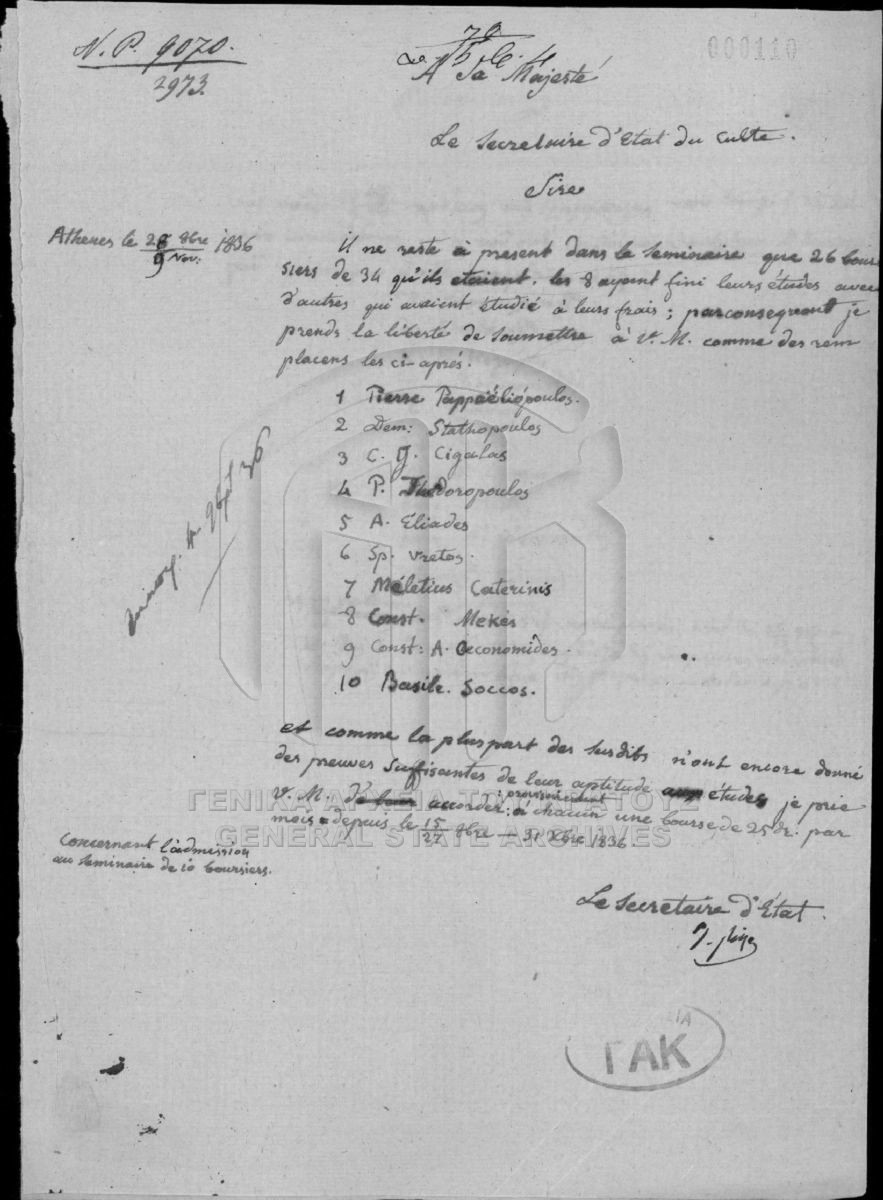 N. P. 9070.
2973.
000110
A Sa Majesté
Le Secretaire d'Etat du Culte.
Sire
Athenes le 28 8bre 1836
9 Nov:
il ne reste à present dans le Seminaire que 26 bour
siers de 34 qu'ils etaient. les 8 ayant fini leurs études avec
d'autres qui avaient étudié à leurs frais; parconsequent je
prends la liberté de Soumettre à V. M. comme des rem
placens les ci-aprés.
1 Pierre Pappaéliópoulos.
2 Dem: Stathopoulos
3 C. J. Cigalas
4 P. Théodoropoulos
5 A. Eliades
6 Sp. Vretos.
7 Méletius Caterinis
8 Const. Mekés
9 Const: A. Oeconomides.
10 Basile. Soccos.
et comme la pluspart des Susdits n'ont encore donné
des preuves Suffisantes de leur aptitude aux études je prie
V. M. d'accorder provisoirement à chacun une bourse de 25 dr. par
mois depuis le 15/27 8bre — 31 Xbre 1836
Concernant l'admission
au Seminaire de 10 boursiers.
Le Secretaire d'Etat.
ΓΕΝΙΚΑ ΑΡΧΕΙΑ ΤΟΥ ΚΡΑΤΟΥΣ
GENERAL STATE ARCHIVES
ΓΑΚ